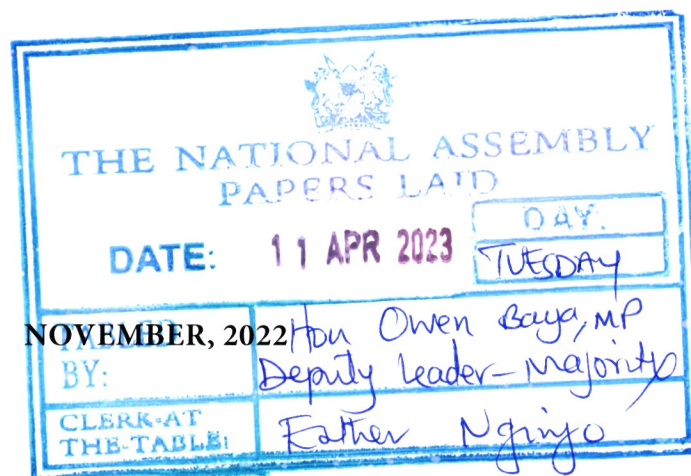 THE NATIONAL ASSEMBLY
PAPERS LAID
DAY:
DATE: 11 APR 2023 TUESDAY
NOVEMBER, 2022 Hon Owen Baya, MP
BY: Deputy Leader-Majority
CLERK-AT
THE-TABLE: Esther